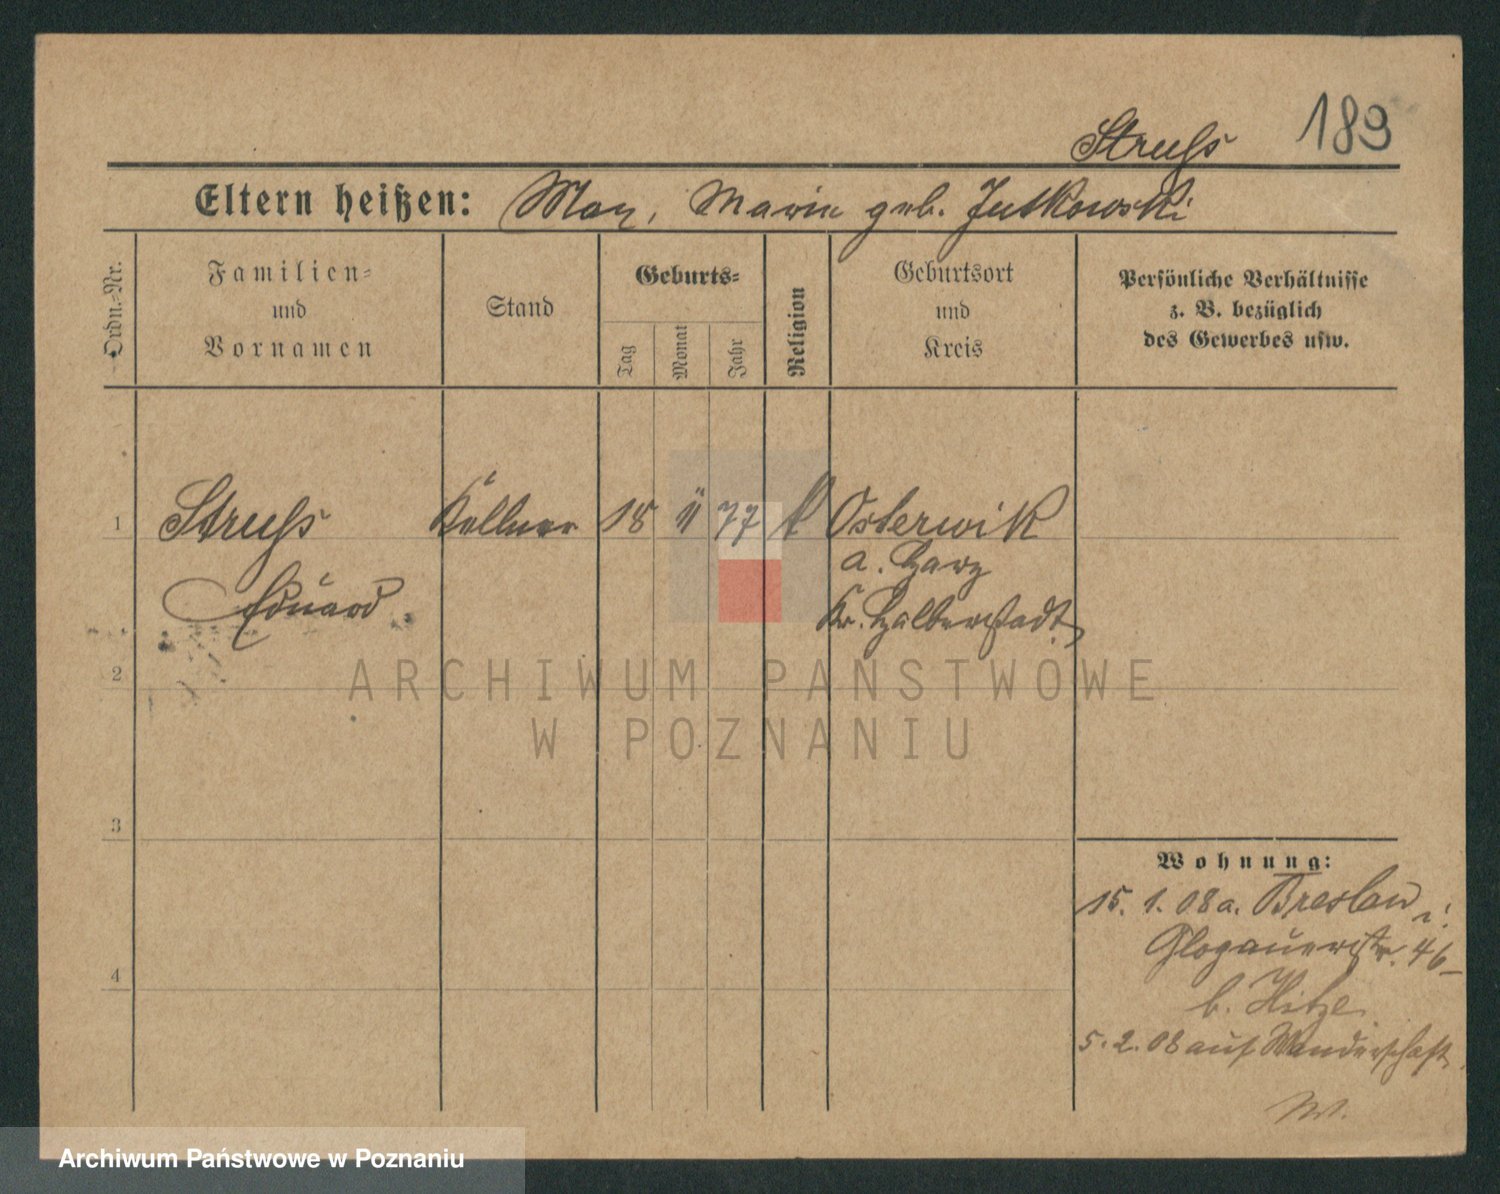 183
Struß
Eltern heißen: Max, Marie geb. Jutkowski
Ordn.-Nr.
Familien-
und
Vornamen
Stand
Geburts-
Tag
Monat
Jahr
Religion
Geburtsort
und
Kreis
Persönliche Verhältnisse
z. B. bezüglich
des Gewerbes usw.
1 Struß Kellner 18 11 77 k Osterwik
a. Harz
Eduard Kr. Halberstadt
2
ARCHIWUM PAŃSTWOWE
W POZNANIU
3
Wohnung:
15. 1. 08 a. Breslau
Glogauerstr. 46
4
b. Hitze
5. 2. 08 auf Wanderschaft
Archiwum Państwowe w Poznaniu